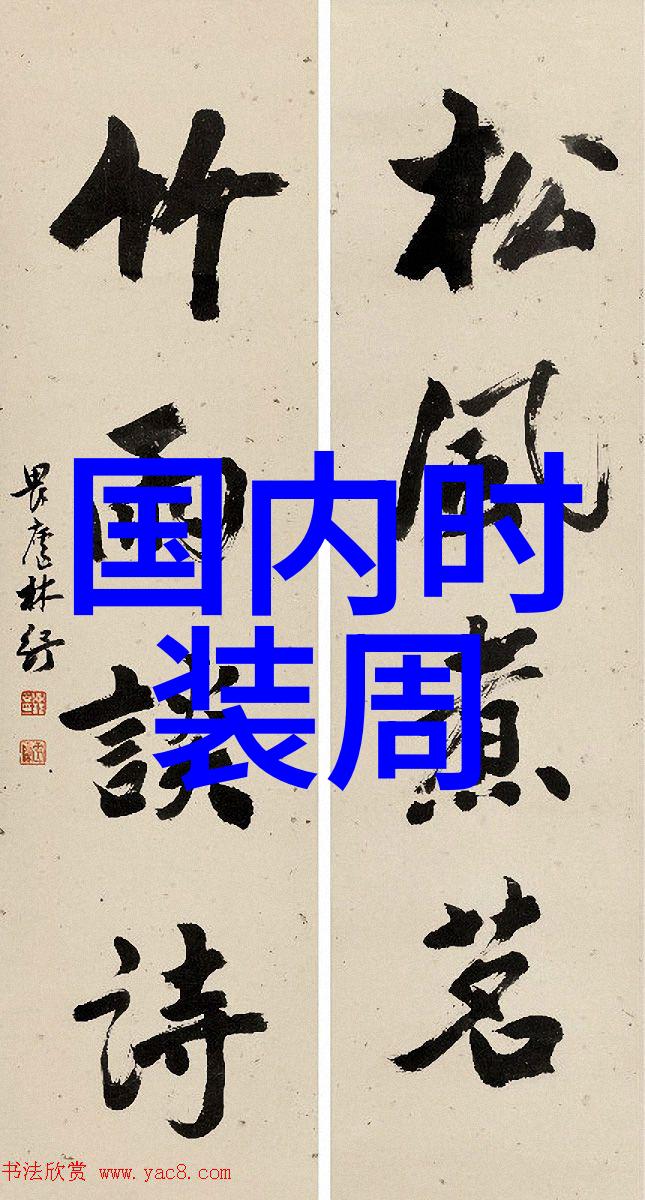 松風煮茗
竹雨談詩
畏廬林紓
国内时
装周
书法欣赏 www.yac8.com